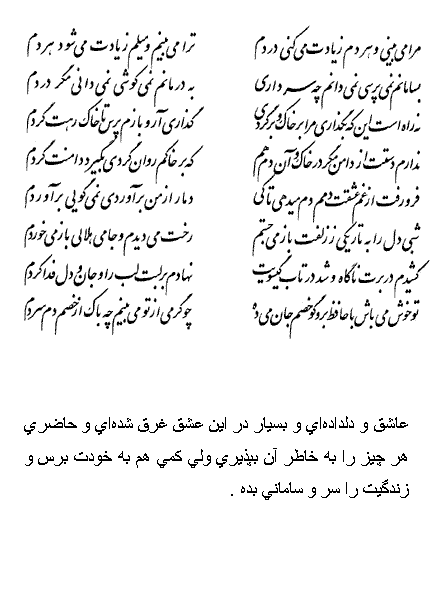 مرا می بینی و هر دم زیادت می کنی دردم ترا می بینم و میلم زیادت می شود هر دم
بسامانم نمی پرسی نمی دانم چه سر داری به درمانم نمی کوشی نمی دانی مگر دردم
نه راه است این که بگذاری مرا بر خاک و برگردی گذاری آر و بازم پرس تا خاک رهت گردم
ندارم دستت از دامن مگر در خاک و آن دم هم که بر خاکم روان گردی بگیرد دامنت گردم
فرو رفت از غم عشقت دمم دم میدهی تا کی دمار از من برآوردی نمی گویی برآوردم
شبی دل را به تاریکی ز زلفت باز می جستم رخت می دیدم و جامی هلالی باز می خوردم
کشیدم در برت ناگاه و شد در تاب گیسویت نهادم بر لبت لب را و جان و دل فدا کردم
تو خوش می باش با حافظ برو گو خصم جان می ده چو گرمی از تو می بینم چه باک از خصم دم سردم
عاشق و دلداده‌اي و بسيار در اين عشق غرق شده‌اي و حاضري
هر چيز را به خاطر آن بپذيري ولي كمي هم به خودت برس و
زندگيت را سر و ساماني بده .